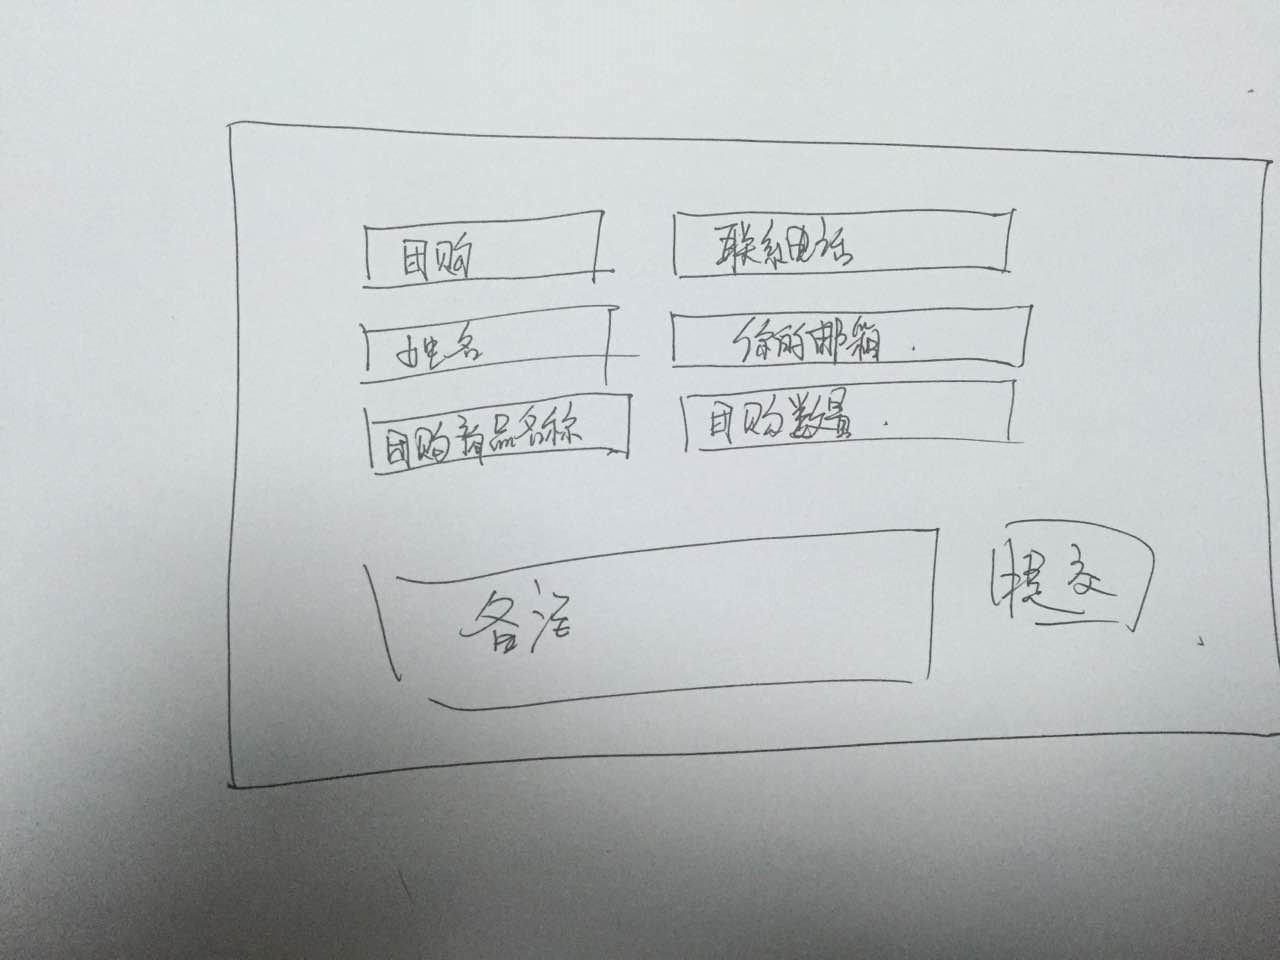 团购 联系电话
姓名 你的邮箱.
团购商品名称 团购数量.
备注 提交